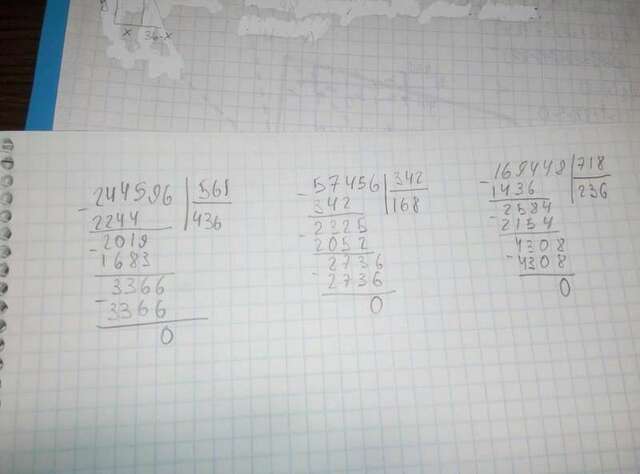 x 36-x
244596 561
- 2244 436
- 2019
1683
- 3366
3366
0
57456 342
- 342 168
- 2325
2052
- 2736
2736
0
169448 718
- 1436 236
- 2584
2154
- 4308
4308
0